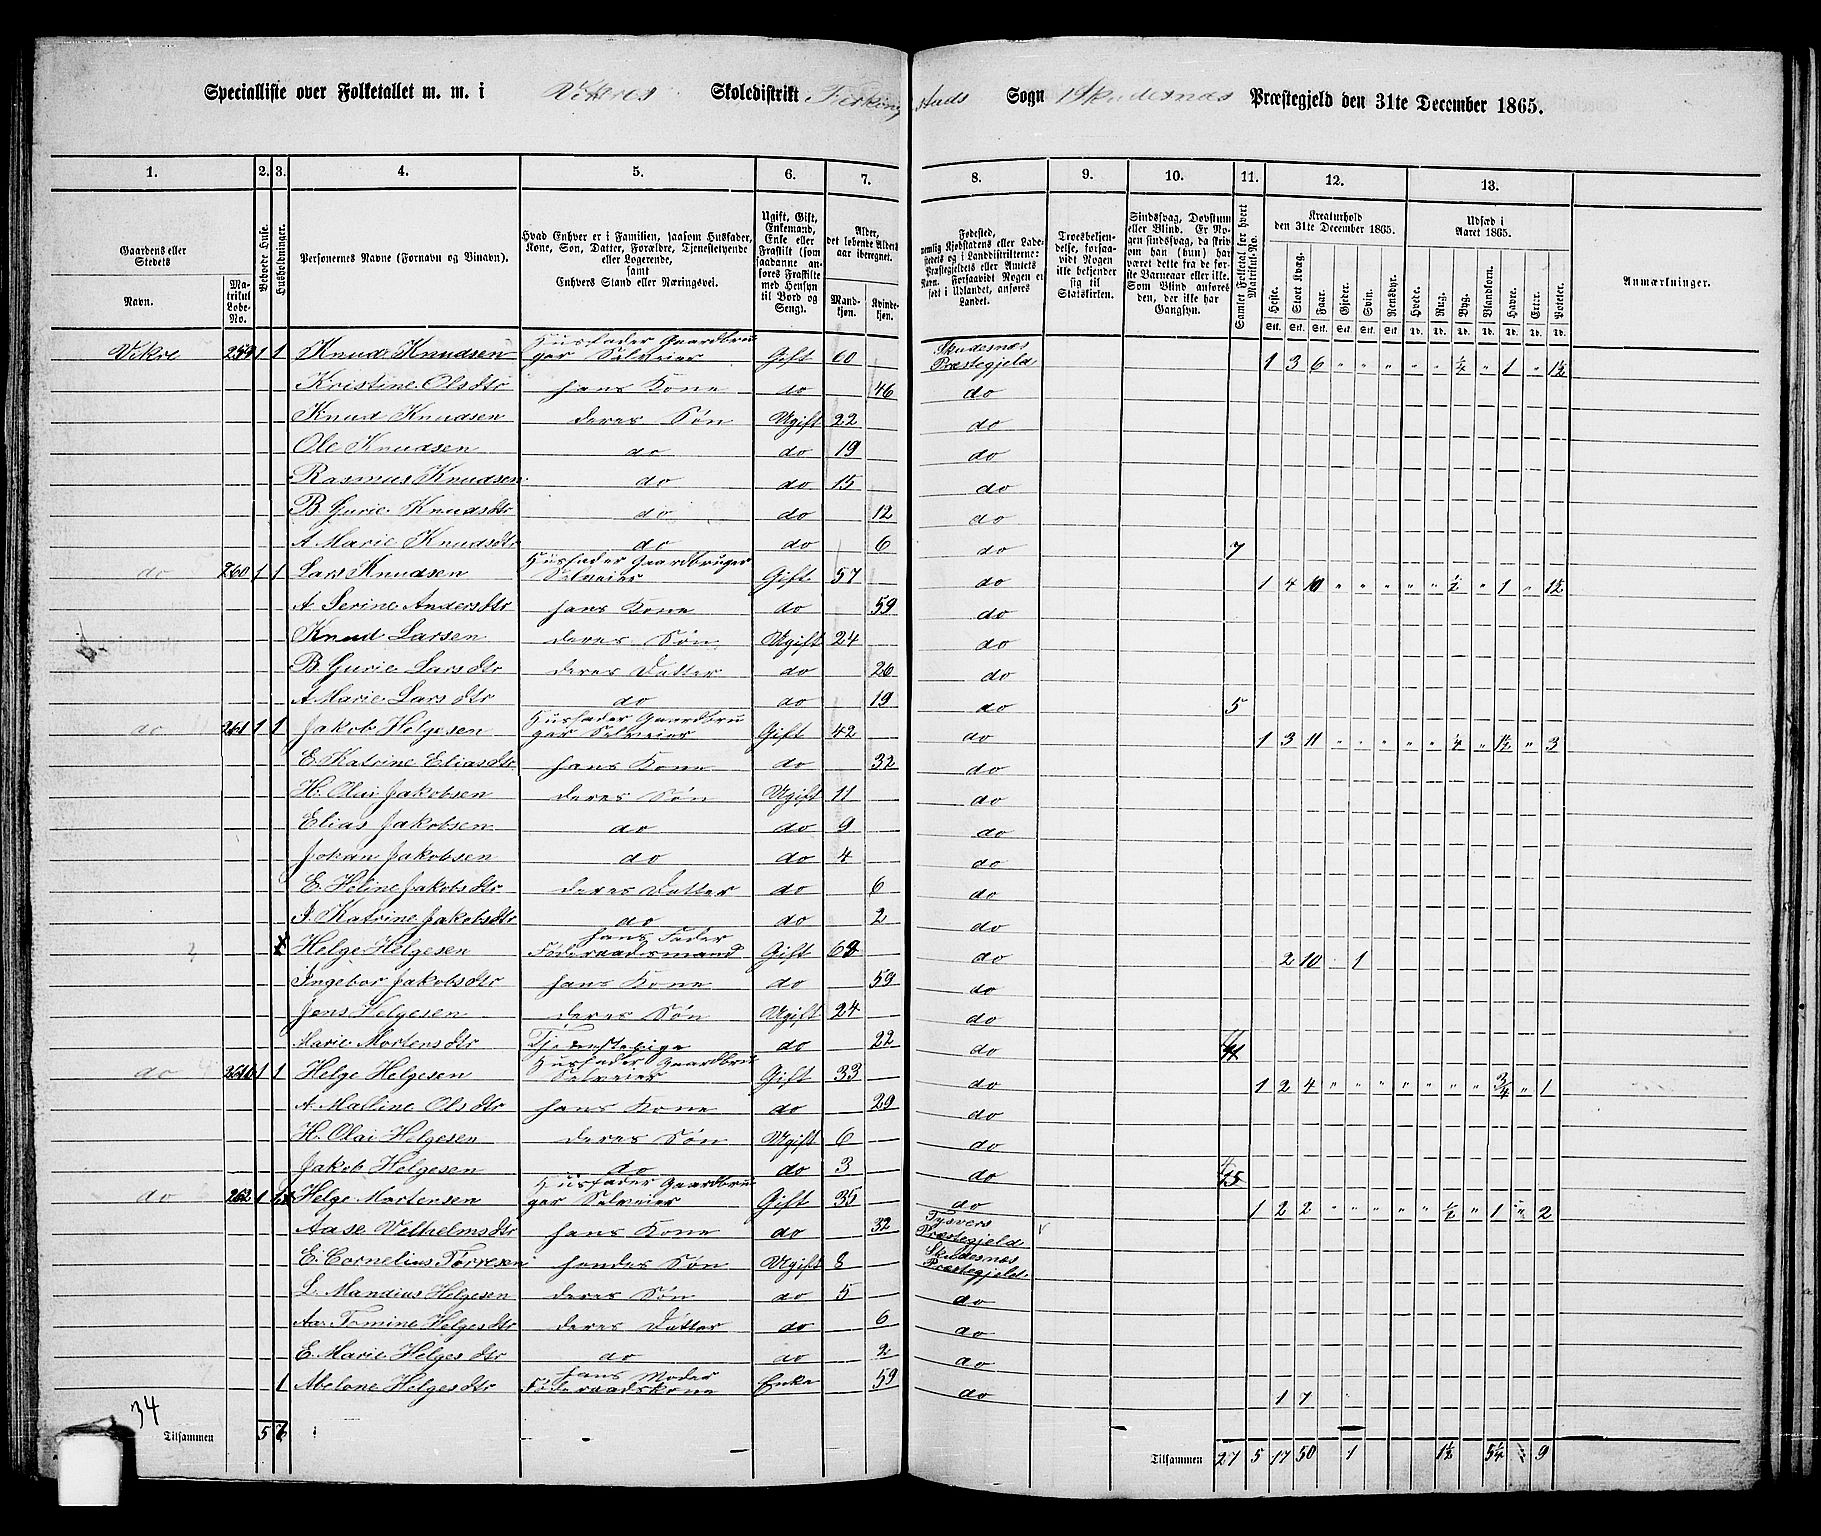 Specialliste over Folketallet m. m. i Vikres Skoledistrikt Ferkingstads Sogn Skudesnæs Præstegjeld den 31te December 1865.
1. 2. 3. 4. 5. 6. 7. 8. 9. 10. 11. 12. 13.
Gaardens eller Stedets
Navn. Matrikul Løbe-No.
Beboede Huse.
Husholdninger.
Personernes Navne (Fornavn og Binavn).
Hvad Enhver er i Familien, saasom Husfader, Kone, Søn, Datter, Forældre, Tjenestetyende eller Logerende, samt Enhvers Stand eller Næringsvei.
Ugift, Gift, Enkemand, Enke eller Fraskilt (som saadanne anføres Fraskilte med Hensyn til Bord og Seng).
Alder, det løbende Alders aar iberegnet.
Mandkjøn. Kvindekjøn.
Fødested, nemlig Kjøbstadens eller Ladestedets og i Landdistrikterne: Præstegjeldets eller Amtets Navn. Forsaavidt Nogen er født i Udlandet, anføres Landet.
Troesbekjendelse, forsaavidt Nogen ikke bekjender sig til Statskirken.
Sindssvag, Døvstum eller Blind. Er Nogen sindssvag, da skrives om han (hun) har været dette fra de første Barneaar eller ikke. Som Blind anføres den, der ikke har Gangsyn.
Samlet Folketal for hvert Matrikul-No.
Kreaturhold den 31te December 1865.
Heste. Stort Kvæg. Faar. Gjeder. Svin. Rensdyr.
Udsæd i Aaret 1865.
Hvede. Rug. Byg. Blandkorn. Havre. Erter. Poteter.
Anmærkninger.
Vikre 259 1 1 Knud Knudsen Husfader Gaardbruger Selveier Gift 60 Skudesnæs Præstegjeld 1 3 6 " " " " " ½ " 1 " 1½
Kristine Olsdtr hans Kone do 46 do
Knud Knudsen deres Søn Ugift 22 do
Ole Knudsen do do 19 do
Rasmus Knudsen do do 15 do
B Gurie Knudsdtr do do 12 do
A Marie Knudsdtr do do 6 do 7
do 260 1 1 Lars Knudsen Husfader Gaardbruger Selveier Gift 57 do 1 4 10 " " " " " ½ " 1 " 1½
A Serine Andersdtr hans Kone do 59 do
Knud Larsen deres Søn Ugift 24 do
B Gurie Larsdtr deres Datter do 26 do
A Marie Larsdtr do do 19 do 5
do 261 1 1 Jakob Helgesen Husfader Gaardbruger Selveier Gift 42 do 1 3 11 " " " " " ¼ " 1½ " 3
E. Katrine Eliasdtr hans Kone do 32 do
H. Olai Jakobsen deres Søn Ugift 11 do
Elias Jakobsen do do 9 do
Johan Jakobsen do do 4 do
E. Heline Jakobsdtr deres Datter do 6 do
J. Katrine Jakobsdtr do do 2 do
Helge Helgesen hans Fader Føderaadsmand Gift do 2 10 1
Ingebor Jakobsdtr hans Kone do 59 do
Jens Helgesen deres Søn Ugift 24 do
Marie Mortensdtr Tjenestepige do 22 do
do 1 1 Helge Helgesen Husfader Gaardbru Selveier Gift 33 do 1 2 4 " " " " " " " ¾ " 1
A. Malline Olsdtr hans Kone do 29 do
H. Olai Helgesen deres Søn Ugift 6 do
Jakob Helgesen do do 3 do
do 262 1 Helge Mortensen Husfader Gaardbruger Selveier Gift 35 do 1 2 2 " " " " " ½ " 1 " 2
Aase Velhelmsdtr hans Kone do 32 Tysvers Præstegjeld
E. Cornelius Törresen hendes Søn Ugift 8 Skudesnæs Præstegjeld
L. Mandius Helgesen deres Søn do 5 do
Aa. Tomine Helgesdtr deres Datter do 6 do
E. Marie Helgesdtr do do 2 do
1 Abelone Helgesdtr hans Moder Føderaadskone Enke 59 do 1 7
34
Tilsammen 5 6 Tilsammen 27 5 17 50 1 1½ 5¼ 9